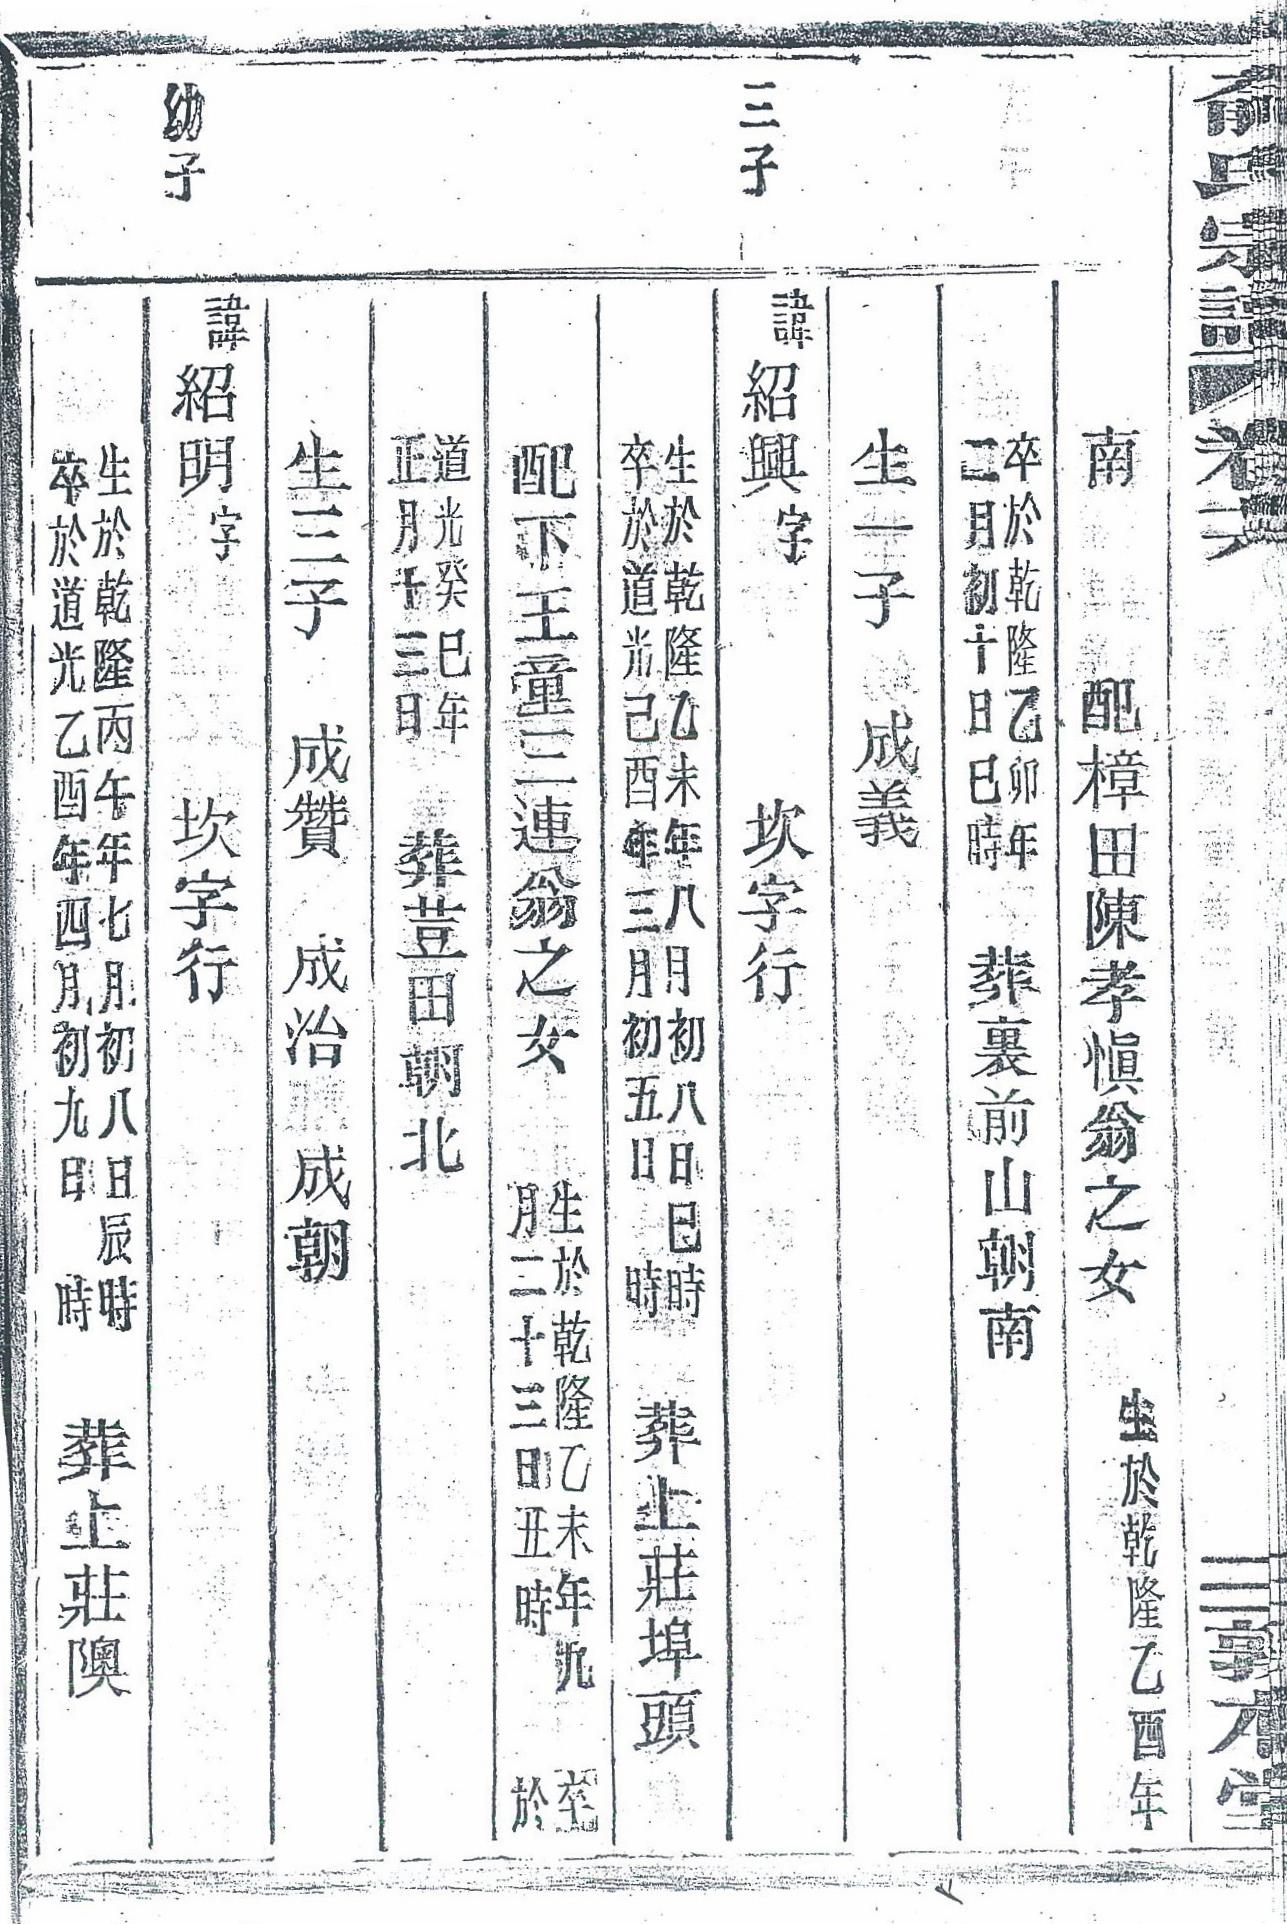 俞氏宗譜 卷六 三 敦本堂
南 配樟田陳孝愼翁之女 生於乾隆乙酉年
卒於乾隆乙卯年
二月初十日巳時 葬裏前山朝南
生一子 成義
三子
諱紹興字 坎字行
生於乾隆乙未年八月初八日巳時
卒於道光己酉年三月初五日 時 葬上莊埠頭
配下王童三連翁之女 生於乾隆乙未年九
月二十三日丑時 卒於
道光癸巳年
正月十三日 葬荳田朝北
生三子 成贊 成治 成朝
幼子
諱紹明字 坎字行
生於乾隆丙午年七月初八日辰時
卒於道光乙酉年四月初九日 時 葬上莊隩